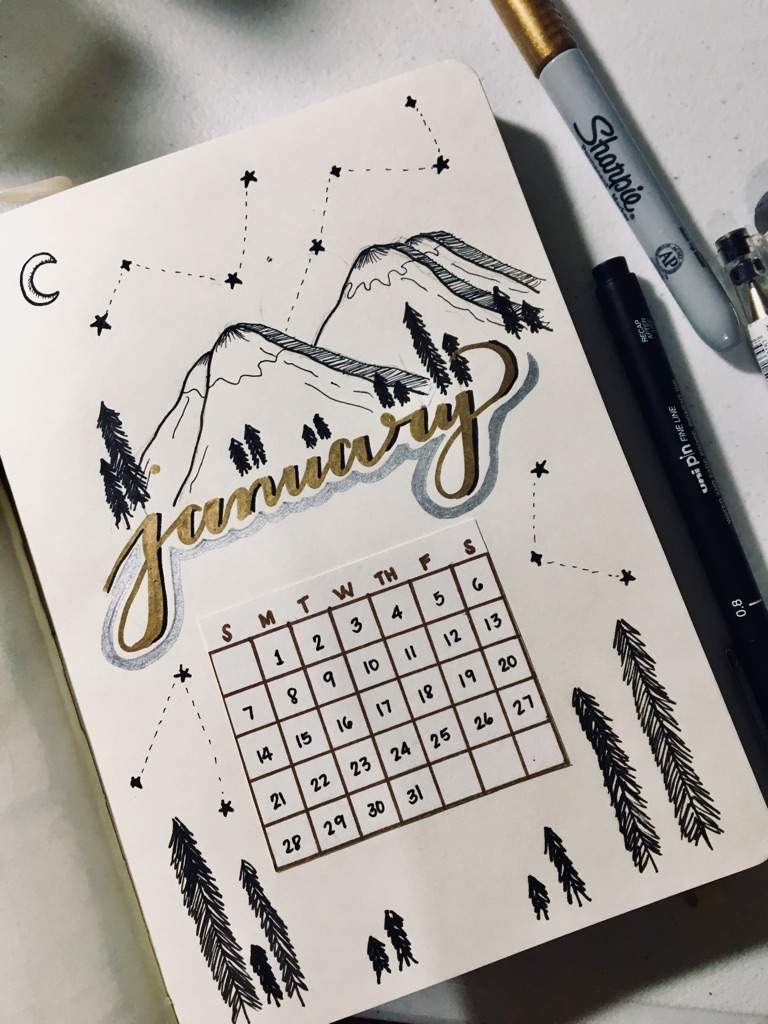 january
S M T W TH F S
1 2 3 4 5 6
7 8 9 10 11 12 13
14 15 16 17 18 19 20
21 22 23 24 25 26 27
28 29 30 31
Sharpie
AP
RECAP
AFTER
uni pin FINE LINE
0.8